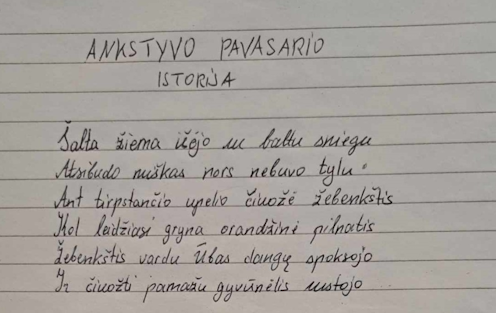 ANKSTYVO PAVASARIO
ISTORIJA
Šalta žiema išėjo su baltu sniegu
Atsibudo miškas nors nebuvo tylu.
Ant tirpstančio upelio čiuožė žebenkštis
Kol leidžiasi gryna orandžinė pilnatis
Žebenkštis vardu Ūbas dangų spoksojo
Ir čiuožti pamažu gyvūnėlis sustojo